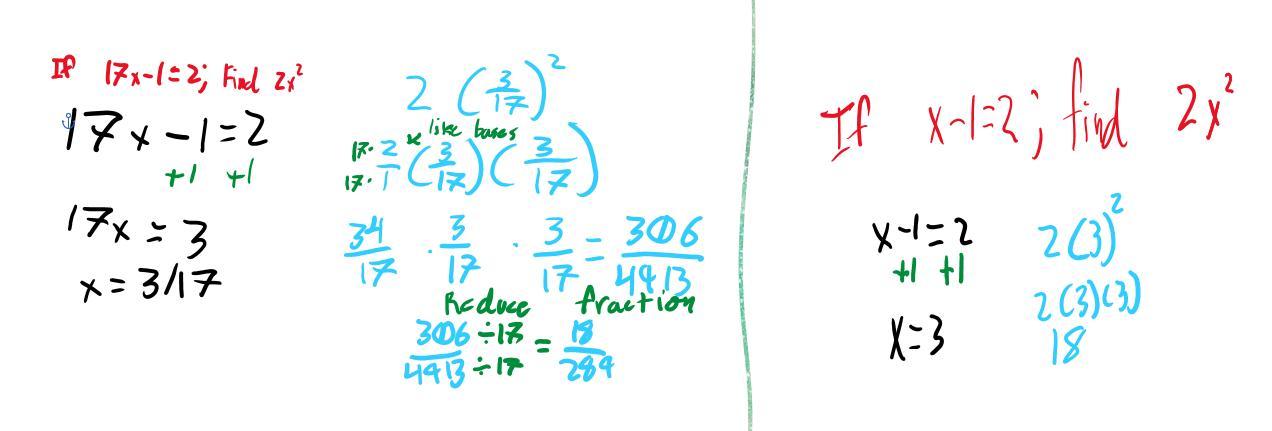 If 17x-1=2; Find 2x²
17x-1=2
+1 +1
17x=3
x=3/17
2 (3/17)²
* like bases
17· 2/17· 1 (3/17)(3/17)
34/17 · 3/17 · 3/17 = 306/4913
Reduce fraction
306÷17/4913÷17 = 18/289
If x-1=2; find 2x²
x-1=2
+1 +1
x=3
2(3)²
2(3)(3)
18